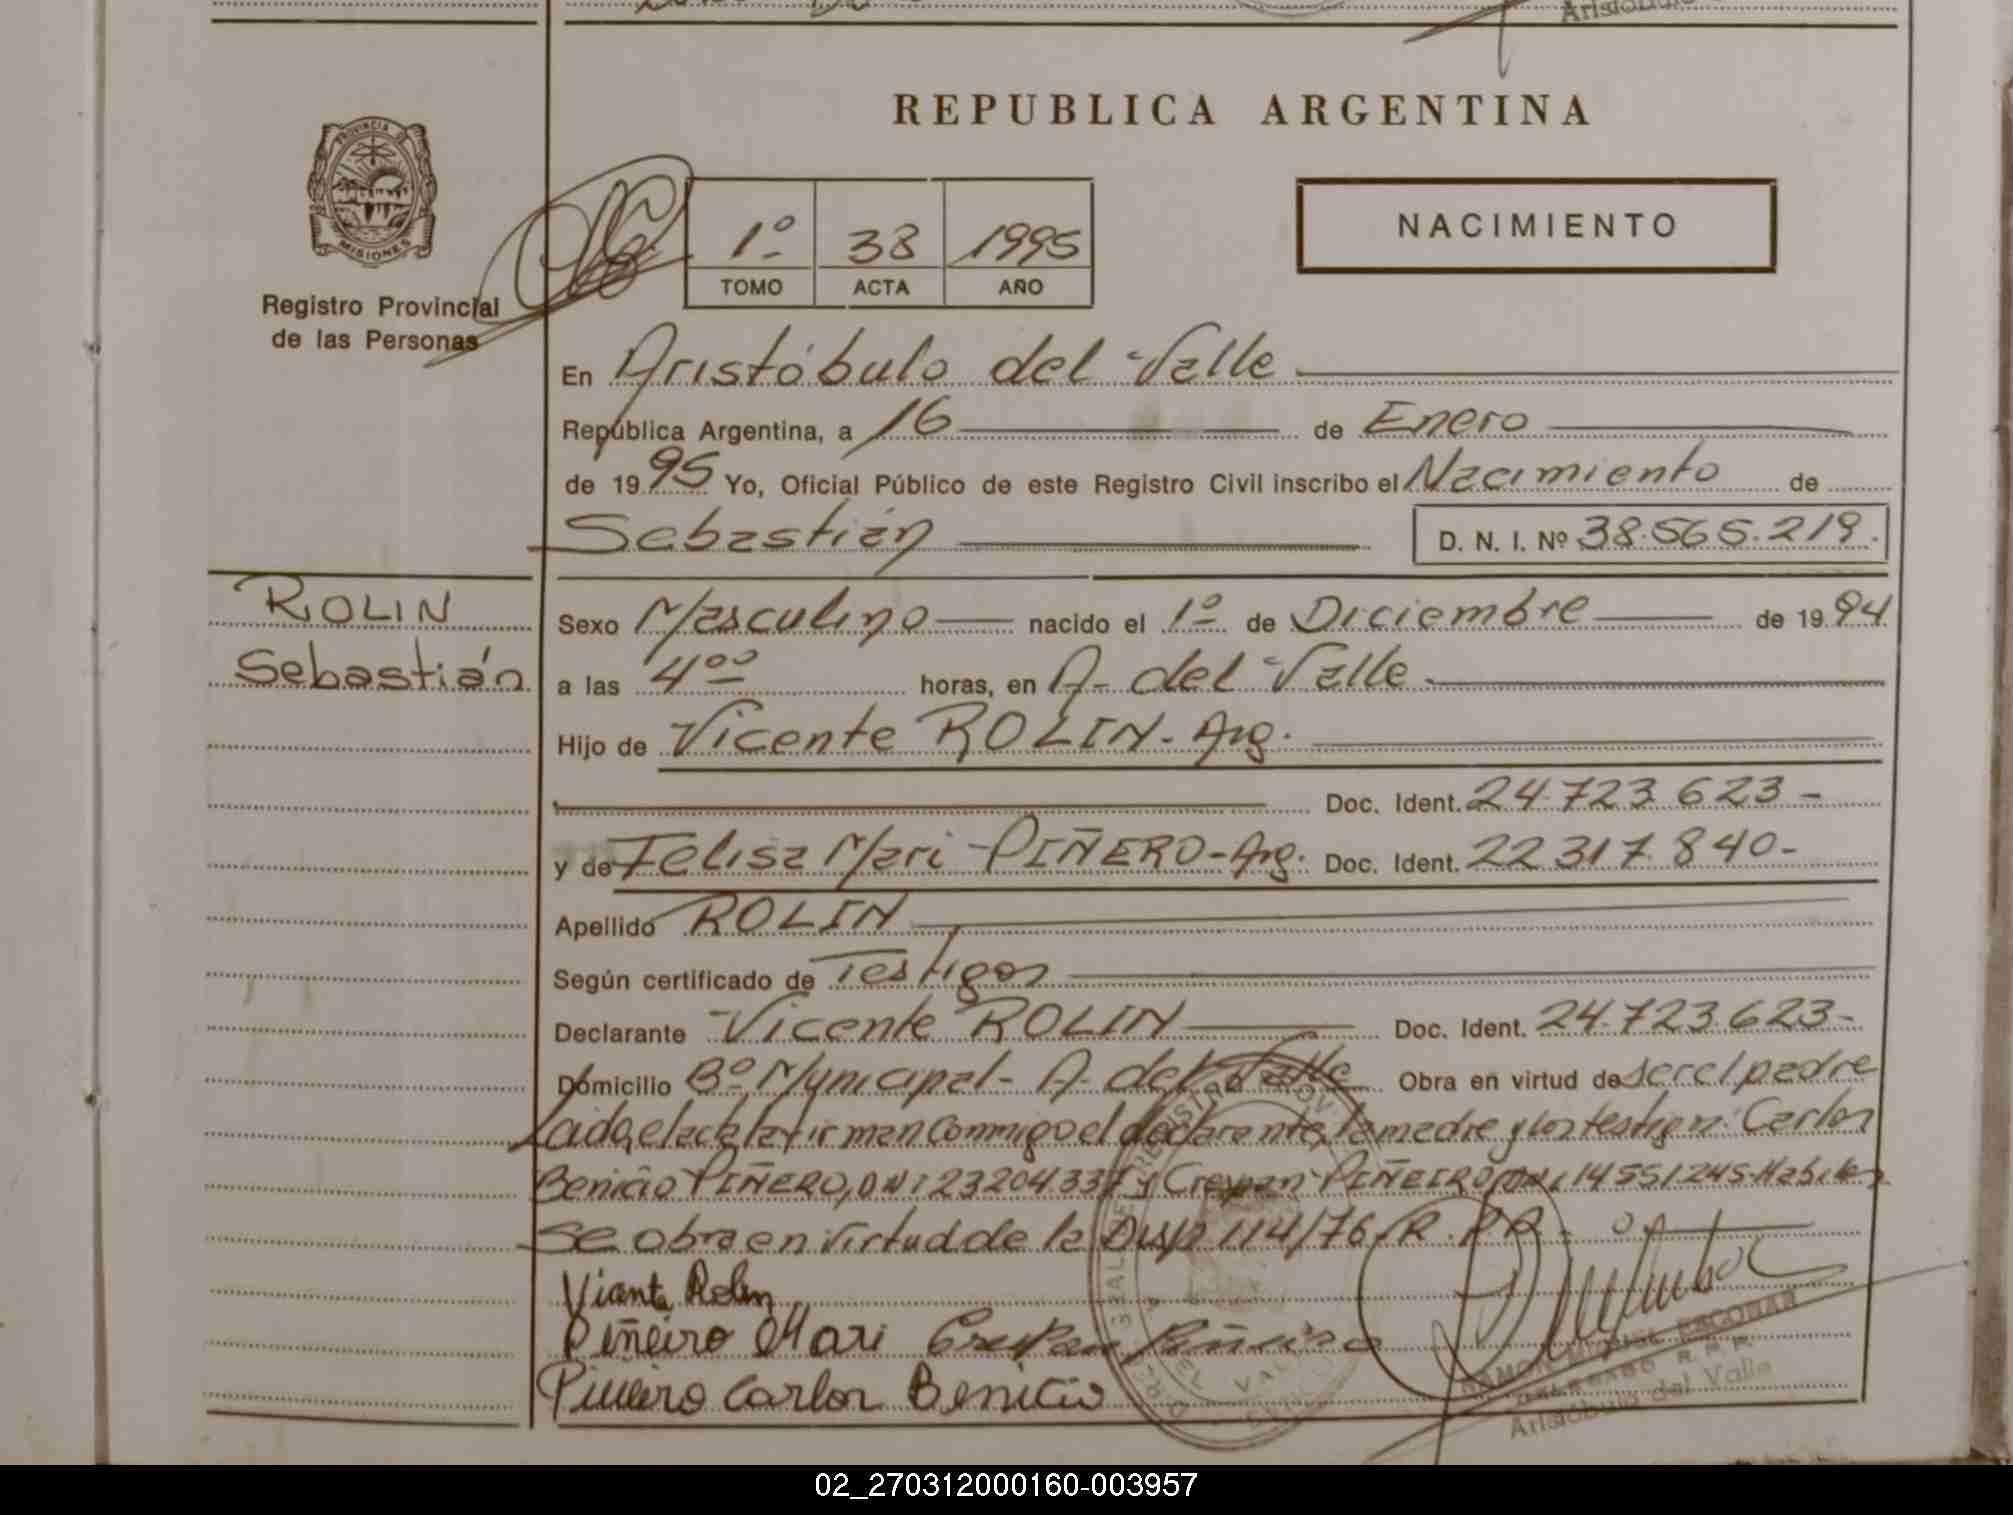 REPUBLICA ARGENTINA
PROVINCIA DE
MISIONES
Registro Provincial
de las Personas
1º 38 1995
TOMO ACTA AÑO
NACIMIENTO
En Aristóbulo del Valle
República Argentina, a 16 de Enero
de 1995 Yo, Oficial Público de este Registro Civil inscribo el Nacimiento de
Sebastián D. N. I. Nº 38.565.219.
ROLIN
Sebastián
Sexo Masculino nacido el 1º de Diciembre de 1994
a las 4ºº horas, en A- del Valle
Hijo de Vicente ROLIN- Arg.
Doc. Ident. 24.723.623-
y de Felisa Mari PIÑERO-Arg. Doc. Ident. 22317.840-
Apellido ROLIN
Según certificado de Testigos
Declarante Vicente ROLIN Doc. Ident. 24.723.623-
Domicilio Bº Municipal- A- del Valle Obra en virtud de ser el padre
Leida el acta la firman conmigo el declarante, la madre y los testigos: Carlos
Benicio PIÑERO, DNI 23204337 y Crespan PIÑEIRO DNI 14551245-Habiles
Se obra en virtud de la Disp 114/76 R.P.P.-
Viante Rolin
Piñeiro Mari
Piñeiro Carlos Benicio
RAMON MIGUEL ESCOBAR
DELEGADO R.P.P.
Aristóbulo del Valle
02_270312000160-003957